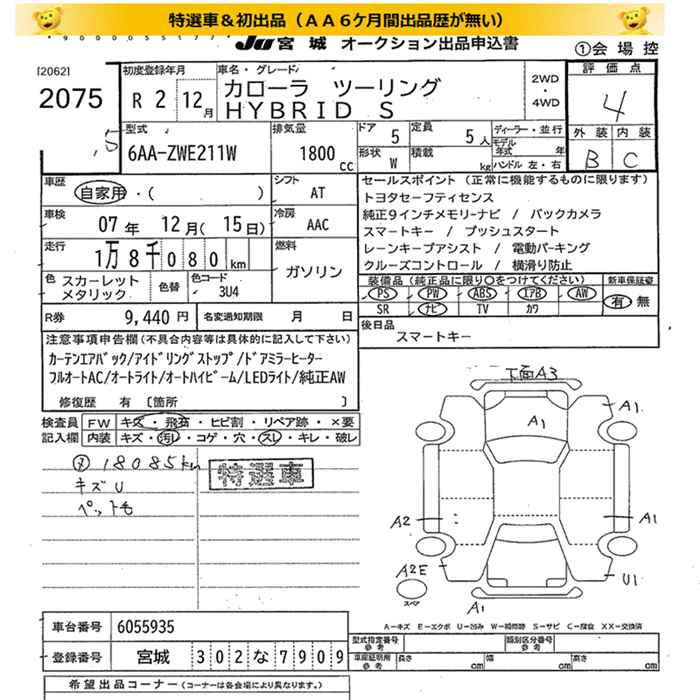 特選車＆初出品（ＡＡ６ケ月間出品歴が無い）
JU 宮城 オークション出品申込書
①会場控
[2062]
2075
初度登録年月
R 2 12月
車名・グレード
カローラ ツーリング
HYBRID S
2WD
・
4WD
評価点
4
外装 内装
B C
型式
6AA-ZWE211W
排気量
1800 cc
ドア 5
定員 5人
ディーラー・並行
モデル年式 年
形状 W
積載 kg
ハンドル 左・右
車歴
自家用・( )
シフト
AT
車検
07年 12月(15日)
冷房
AAC
走行
1万8千080km
燃料
ガソリン
色 スカーレットメタリック
色替
色コード
3U4
R券 9,440円
名変通知期限 月 日
セールスポイント（正常に機能するものに限ります）
トヨタセーフティセンス
純正9インチメモリーナビ / バックカメラ
スマートキー / プッシュスタート
レーンキープアシスト / 電動パーキング
クルーズコントロール / 横滑り防止
装備品（純正品に限り○をつけてください）
新車保証書
PS PW ABS エアB AW
有・無
SR ナビ TV カワ
後日品
スマートキー
注意事項申告欄(不具合内容等は具体的に記入して下さい)
カーテンエアバック/アイドリングストップ/ドアミラーヒーター
フルオートAC/オートライト/オートハイビーム/LEDライト/純正AW
修復歴 有 〔箇所 〕
検査員記入欄
FW キズ・飛石・ヒビ割・リペア跡・×要
内装 キズ・汚レ・コゲ・穴・スレ・キレ・破レ
18085km
キズU
ペット毛
特選車
下面A3
A1
A1
A2
A1
A2E
スペア
U1
A1
A-キズ E-エクボ U-凹み W-補修跡 S-サビ C-腐食 XX-交換済
車台番号 6055935
登録番号 宮城 302な7909
型式指定番号
類別区分番号
車庫証明用参考
長さ cm
幅 cm
高さ cm
希望出品コーナー（コーナーは各会場により異なります。）